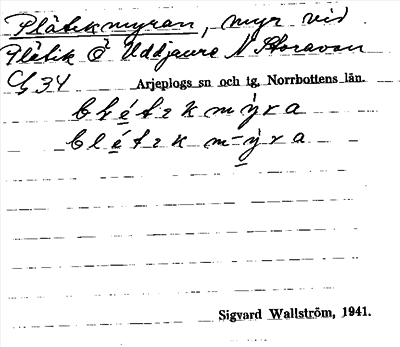 Plätikmyran, myr vid
Plätik Ö Uddjaure N Storavan
Cg 34
Arjeplogs sn och tg, Norrbottens län.
blétɩkmýra
blétɩkm=ýra
Sigvard Wallström, 1941.